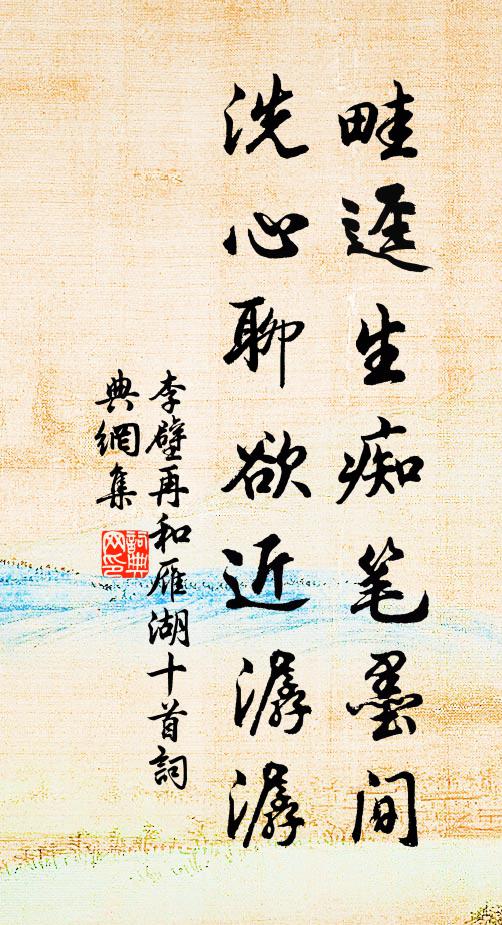 畦迳生痴笔墨间
洗心聊欲近潺潺
李壁再和雁湖十首詞
典網集
詞典
网印